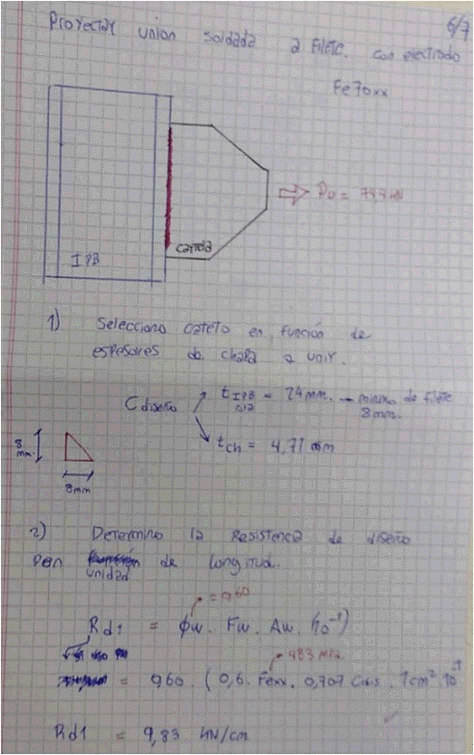 6/7
Proyectar union soldada a filete. con electrodo
Fe70xx
Pu = 744 kN
cartela
IPB
1) Selecciono cateto en función de
espesores de chapa a unir.
C diseño
t IPB = 24mm. → minimo de filete
8mm.
t ch = 4,71 mm
8
mm.
8mm
2) Determino la Resistencia de diseño
por unidad de longitud.
= 0,60
Rd1 = ϕw . Fw . Aw . (10⁻¹)
483 MPa
= 0,60 . ( 0,6 . Fexx . 0,707 . 1cm² . 10⁻¹
Rd1 = 9,83 kN/cm